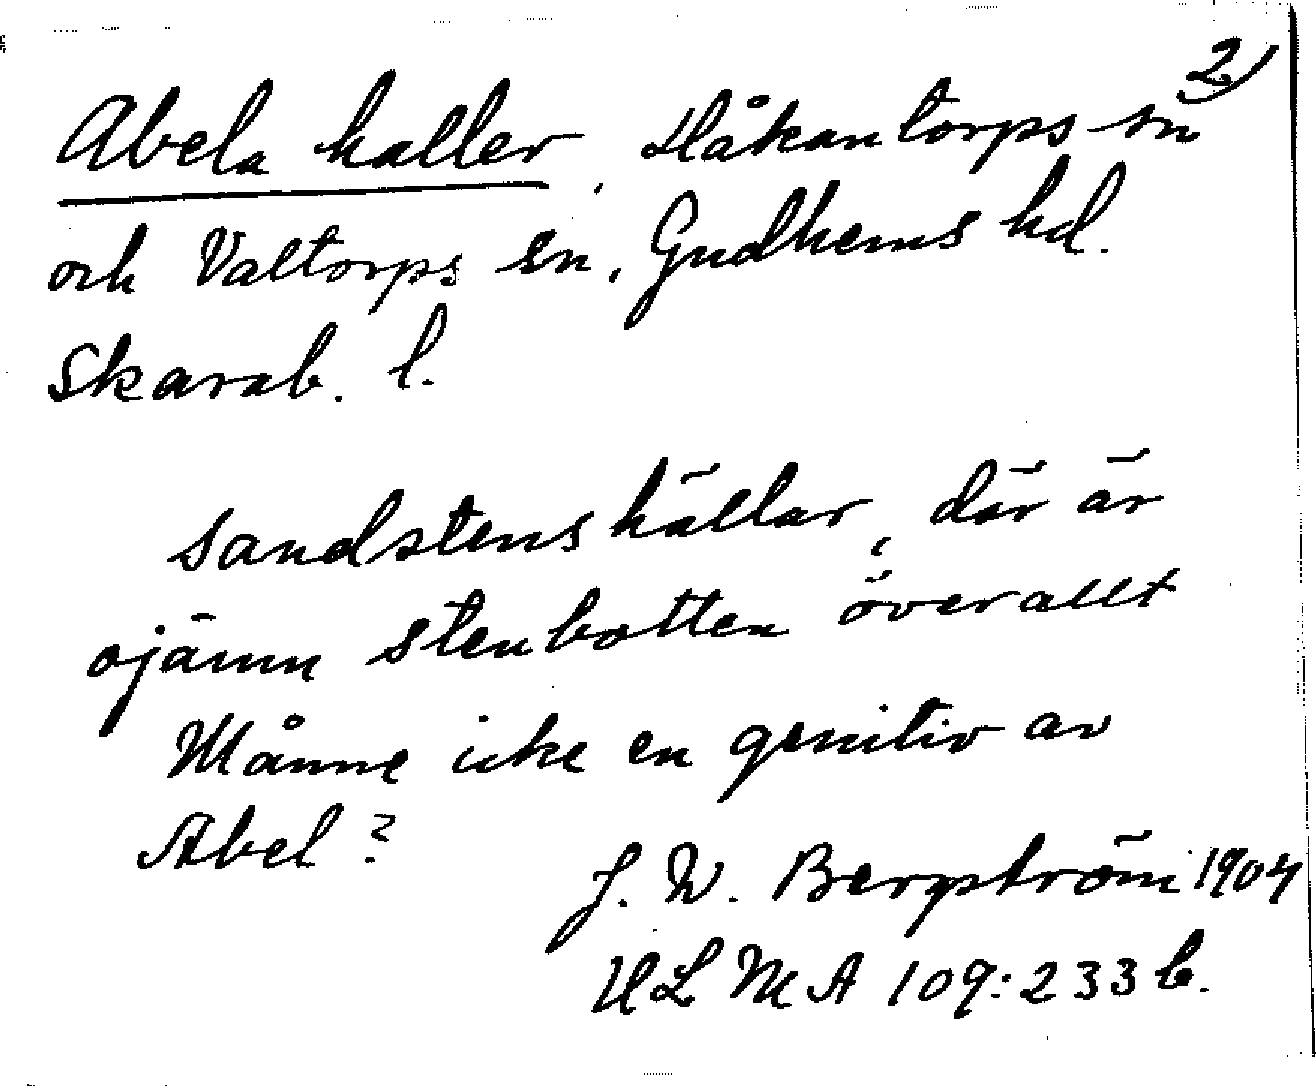 2)
Abela haller, Håkantorps sn
och Valtorps sn, Gudhems hd.
Skarab. l.
sandstenshällar, där är
ojämn stenbotten överallt
Månne icke en genitiv av
Abel?
J. W. Bergström 1904
ULMA 109:233 b.